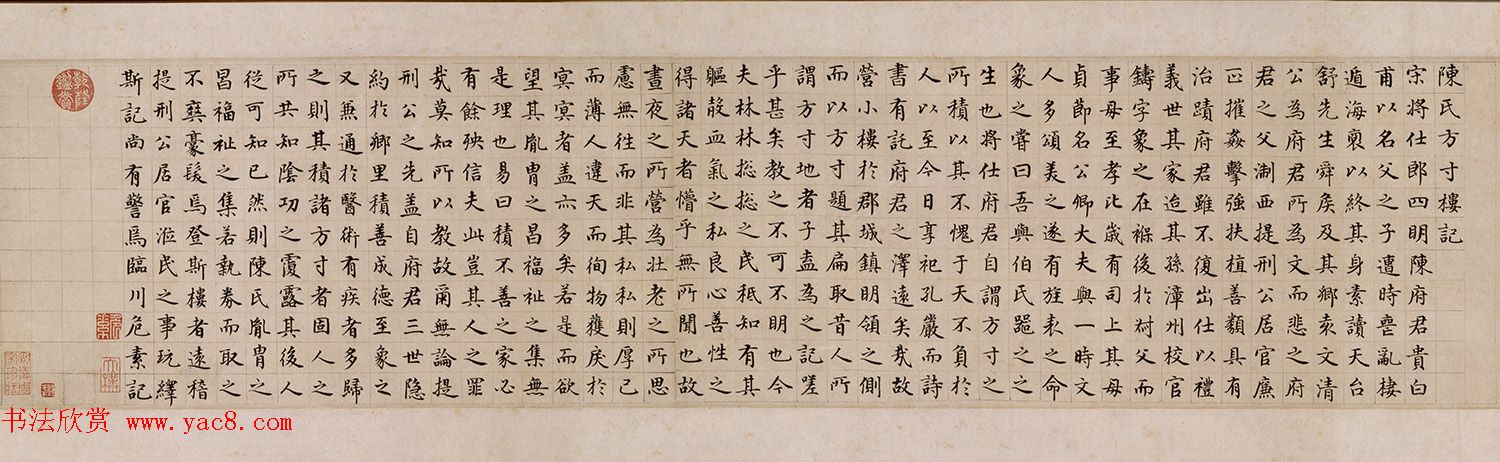 陳氏方寸樓記
宋將仕郎四明陳府君貴白
甫以名父之子遭時喪亂棲
遁海裔以終其身素讀天台
舒先生舜矦及其鄉袁文清
公為府君所為文而悲之府
君之父淛西提刑公居官廉
正摧姦擊強扶植善類具有
治蹟府君雖不復出仕以禮
義世其家迨其孫漳州校官
鑄字象之在褓後於父而
事母至孝比歲有司上其母
貞節名公卿大夫與一時文
人多頌美之遂有旌表之命
象之嘗曰吾與伯氏之之
生也將仕府君自謂方寸之
所積以其不愧于天不負於
人以至今日享祀孔嚴而詩
書有託府君之澤遠矣哉故
營小樓於郡城鎮明領之側
而以方寸題其扁取昔人所
謂方寸地者子盍為之記嗟
乎甚矣教之不可不明也今
夫林林捴捴之民秪知有其
軀殼血氣之私良心善性之
得諸天者懵乎無所聞也故
晝夜之所營為壯老之所思
慮無徃而非其私私則厚己
而薄人違天而徇物獲戾於
冥冥者蓋亦多矣若是而欲
望其胤胄之昌福祉之集無
是理也易曰積不善之家必
有餘殃信夫此豈其人之罪
哉莫知所以教故爾無論提
刑公之先蓋自府君三世隐
約於鄉里積善成德至象之
又兼通於醫術有疾者多歸
之則其積諸方寸者固人之
所共知陰功之霞露其後人
從可知已然則陳氏胤胄之
昌福祉之集若執券而取之
不爽豪髮焉登斯樓者遠稽
提刑公居官涖民之事玩繹
斯記尚有警焉臨川危素記
书法欣赏 www.yac8.com